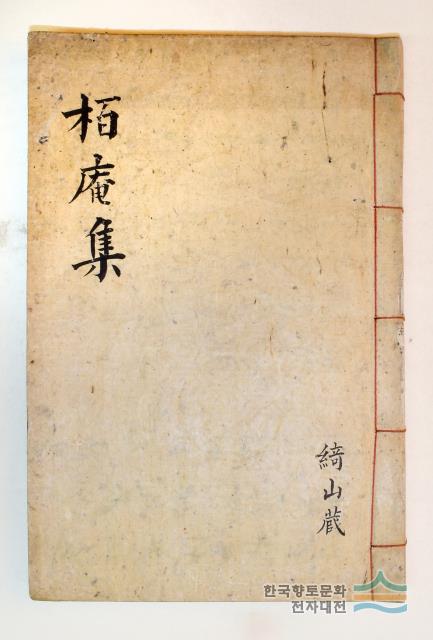 栢庵集
綺山藏
한국향토문화
전자대전